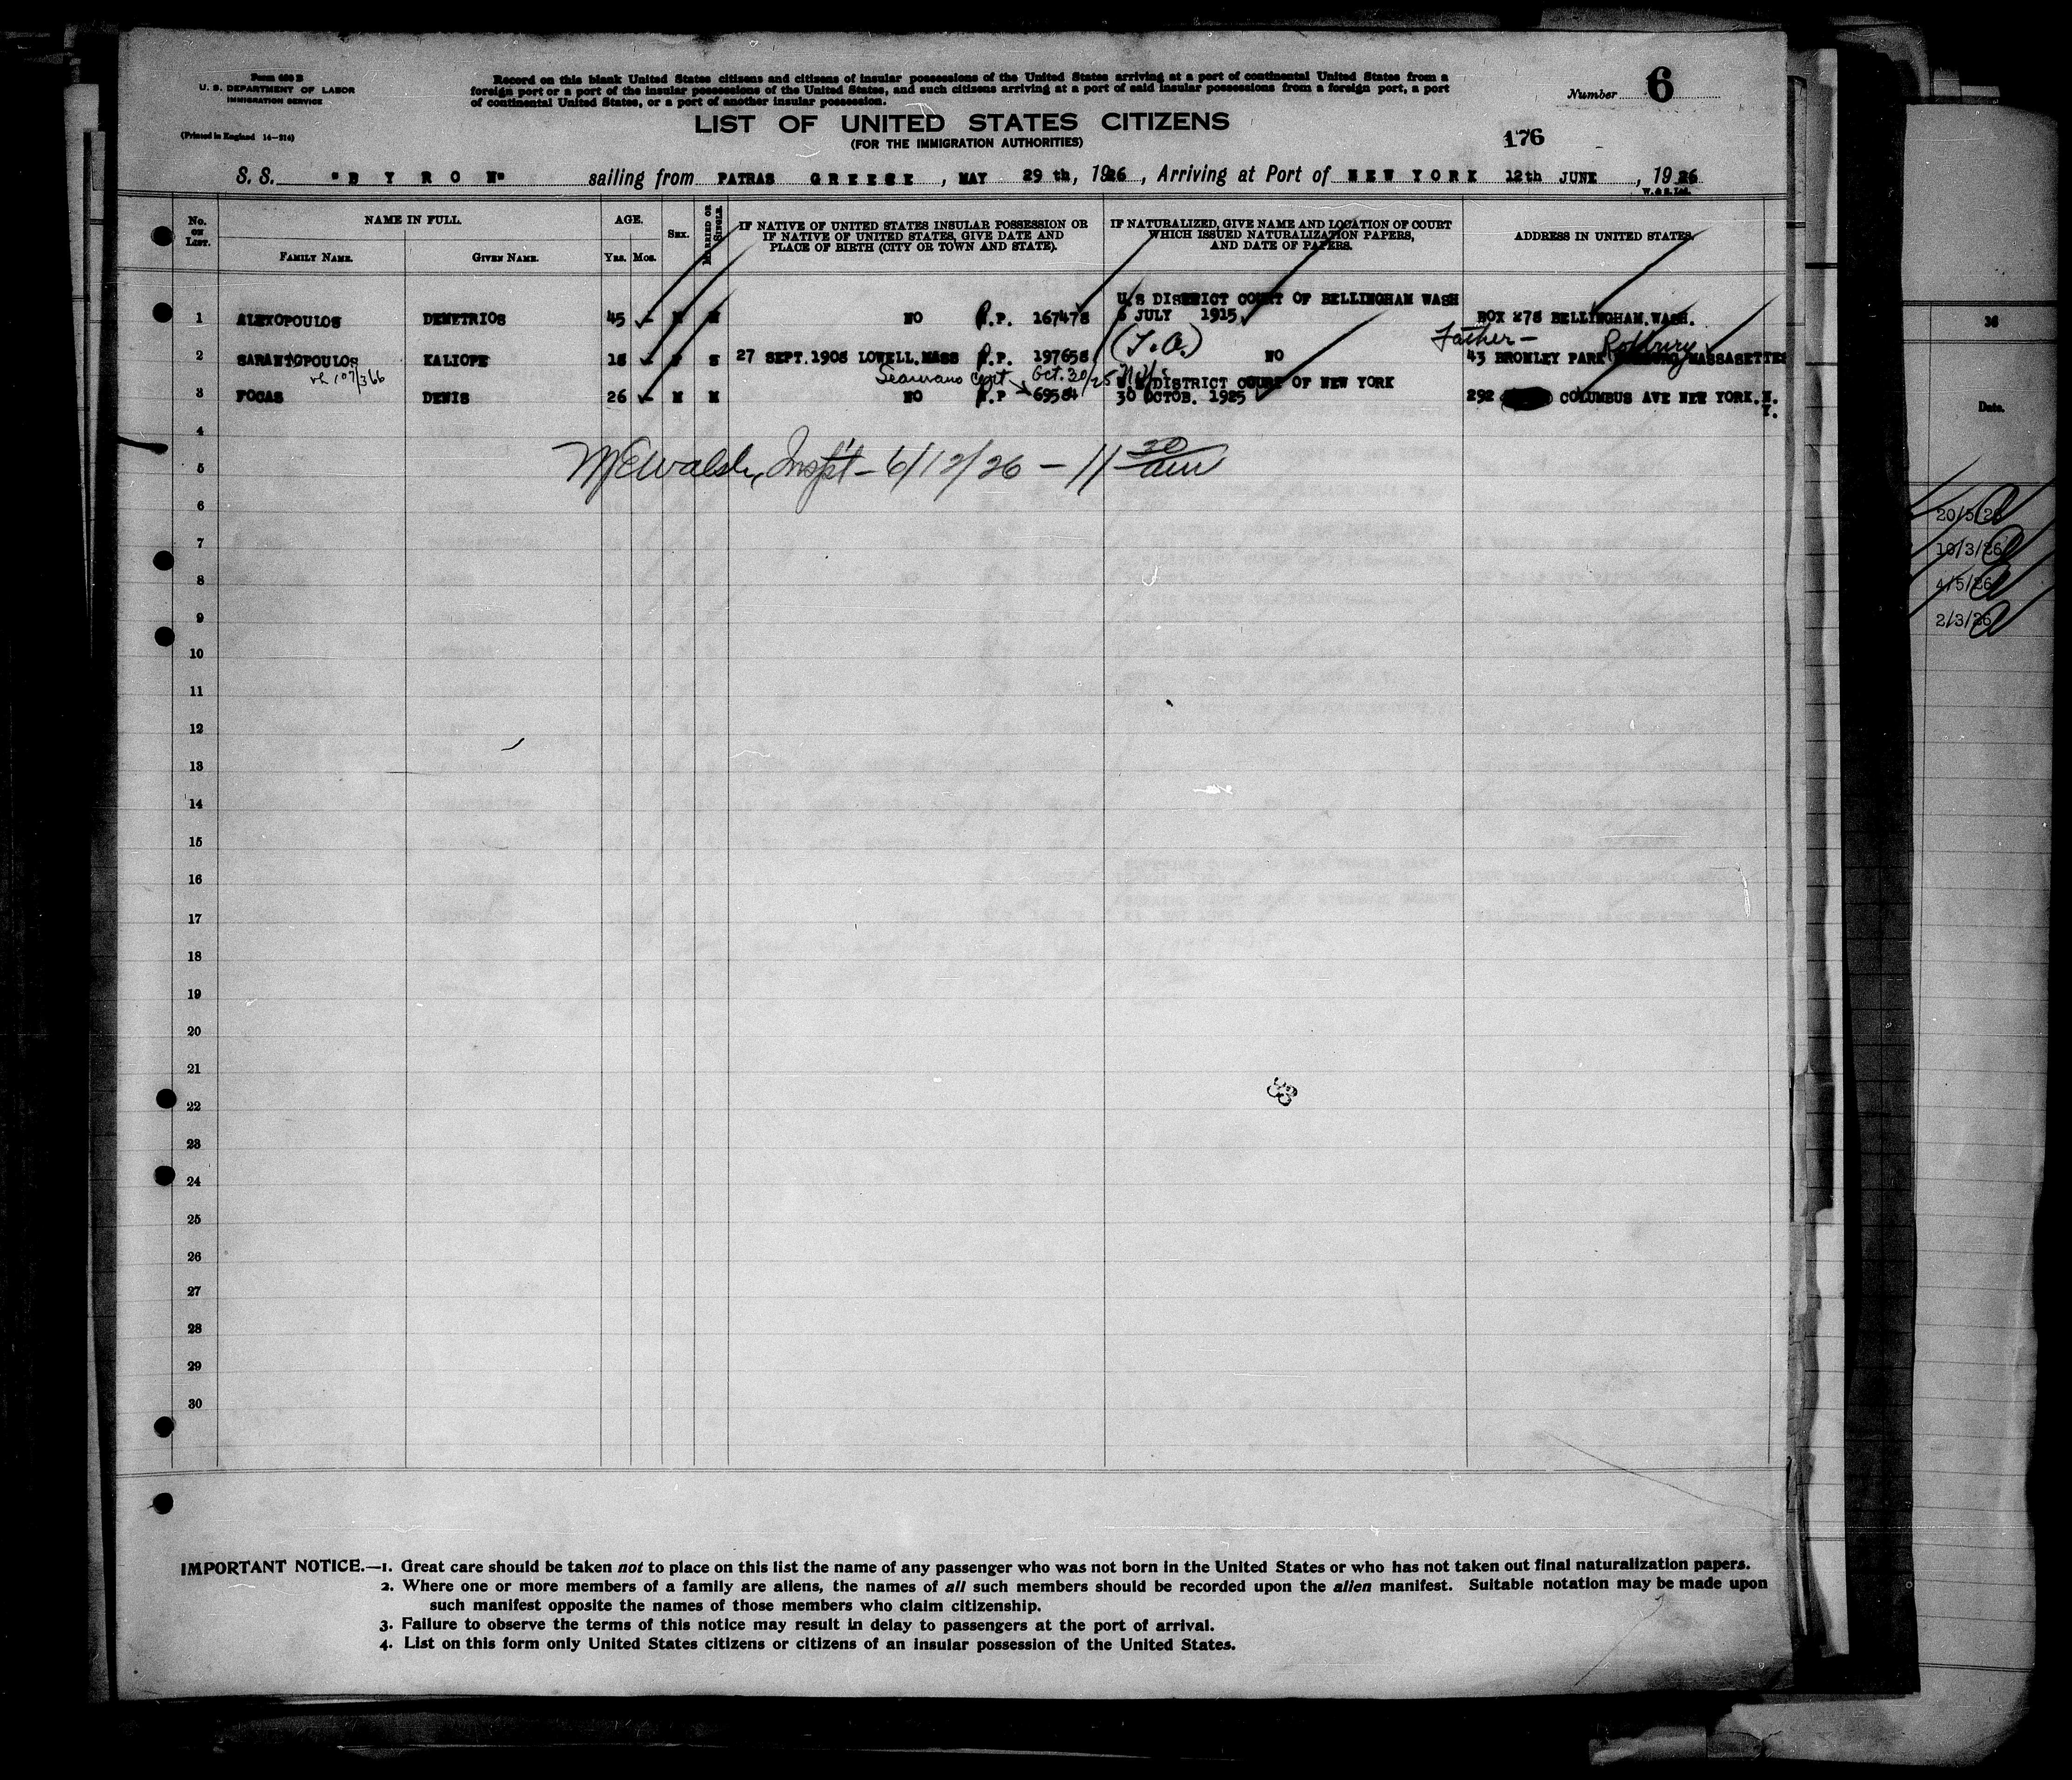 Form 630 B
U. S. DEPARTMENT OF LABOR
IMMIGRATION SERVICE
(Printed in England 14—214)
Record on this blank United States citizens and citizens of insular possessions of the United States arriving at a port of continental United States from a
foreign port or a port of the insular possessions of the United States, and such citizens arriving at a port of said insular possessions from a foreign port, a port
of continental United States, or a port of another insular possession.
Number 6
LIST OF UNITED STATES CITIZENS
(FOR THE IMMIGRATION AUTHORITIES)
176
S. S. "BYRON" sailing from PATRAS GREESE, MAY 29 th, 1926, Arriving at Port of NEW YORK 12th JUNE, 1926
W. & S. Ltd.
No. ON LIST. NAME IN FULL. AGE. SEX. MARRIED OR SINGLE. IF NATIVE OF UNITED STATES INSULAR POSSESSION OR IF NATIVE OF UNITED STATES, GIVE DATE AND PLACE OF BIRTH (CITY OR TOWN AND STATE). IF NATURALIZED, GIVE NAME AND LOCATION OF COURT WHICH ISSUED NATURALIZATION PAPERS, AND DATE OF PAPERS. ADDRESS IN UNITED STATES.
FAMILY NAME. GIVEN NAME. Yrs. Mos.
U.S DISTRICT COURT OF BELLINGHAM WASH
1 ALEXOPOULOS DEMETRIOS 45 M M NO P.P. 167478 6 JULY 1915 BOX 278 BELLINGHAM.WASH.
(T.A.) Father— Roxbury
2 SARANTOPOULOS KALIOPE 18 F S 27 SEPT.1908 LOWELL.MASS P.P. 197658 NO 43 BROMLEY PARK MASSASETTES
Seamans Cert Oct. 30/25 U.S DISTRICT COURT OF NEW YORK
3 FOCAS DENIS 26 M M NO P.P 69584 30 OCTOB. 1925 292 COLUMBUS AVE NEW YORK.N.Y.
4
5
McWalsh, Insp't — 6/12/26 — 11 30 am
6
7
8
9
10
11
12
13
14
15
16
17
18
19
20
21
22
23
24
25
26
27
28
29
30
IMPORTANT NOTICE.—1. Great care should be taken not to place on this list the name of any passenger who was not born in the United States or who has not taken out final naturalization papers.
2. Where one or more members of a family are aliens, the names of all such members should be recorded upon the alien manifest. Suitable notation may be made upon
such manifest opposite the names of those members who claim citizenship.
3. Failure to observe the terms of this notice may result in delay to passengers at the port of arrival.
4. List on this form only United States citizens or citizens of an insular possession of the United States.
36
Date.
20/5/26
10/3/26
4/5/26
2/3/26